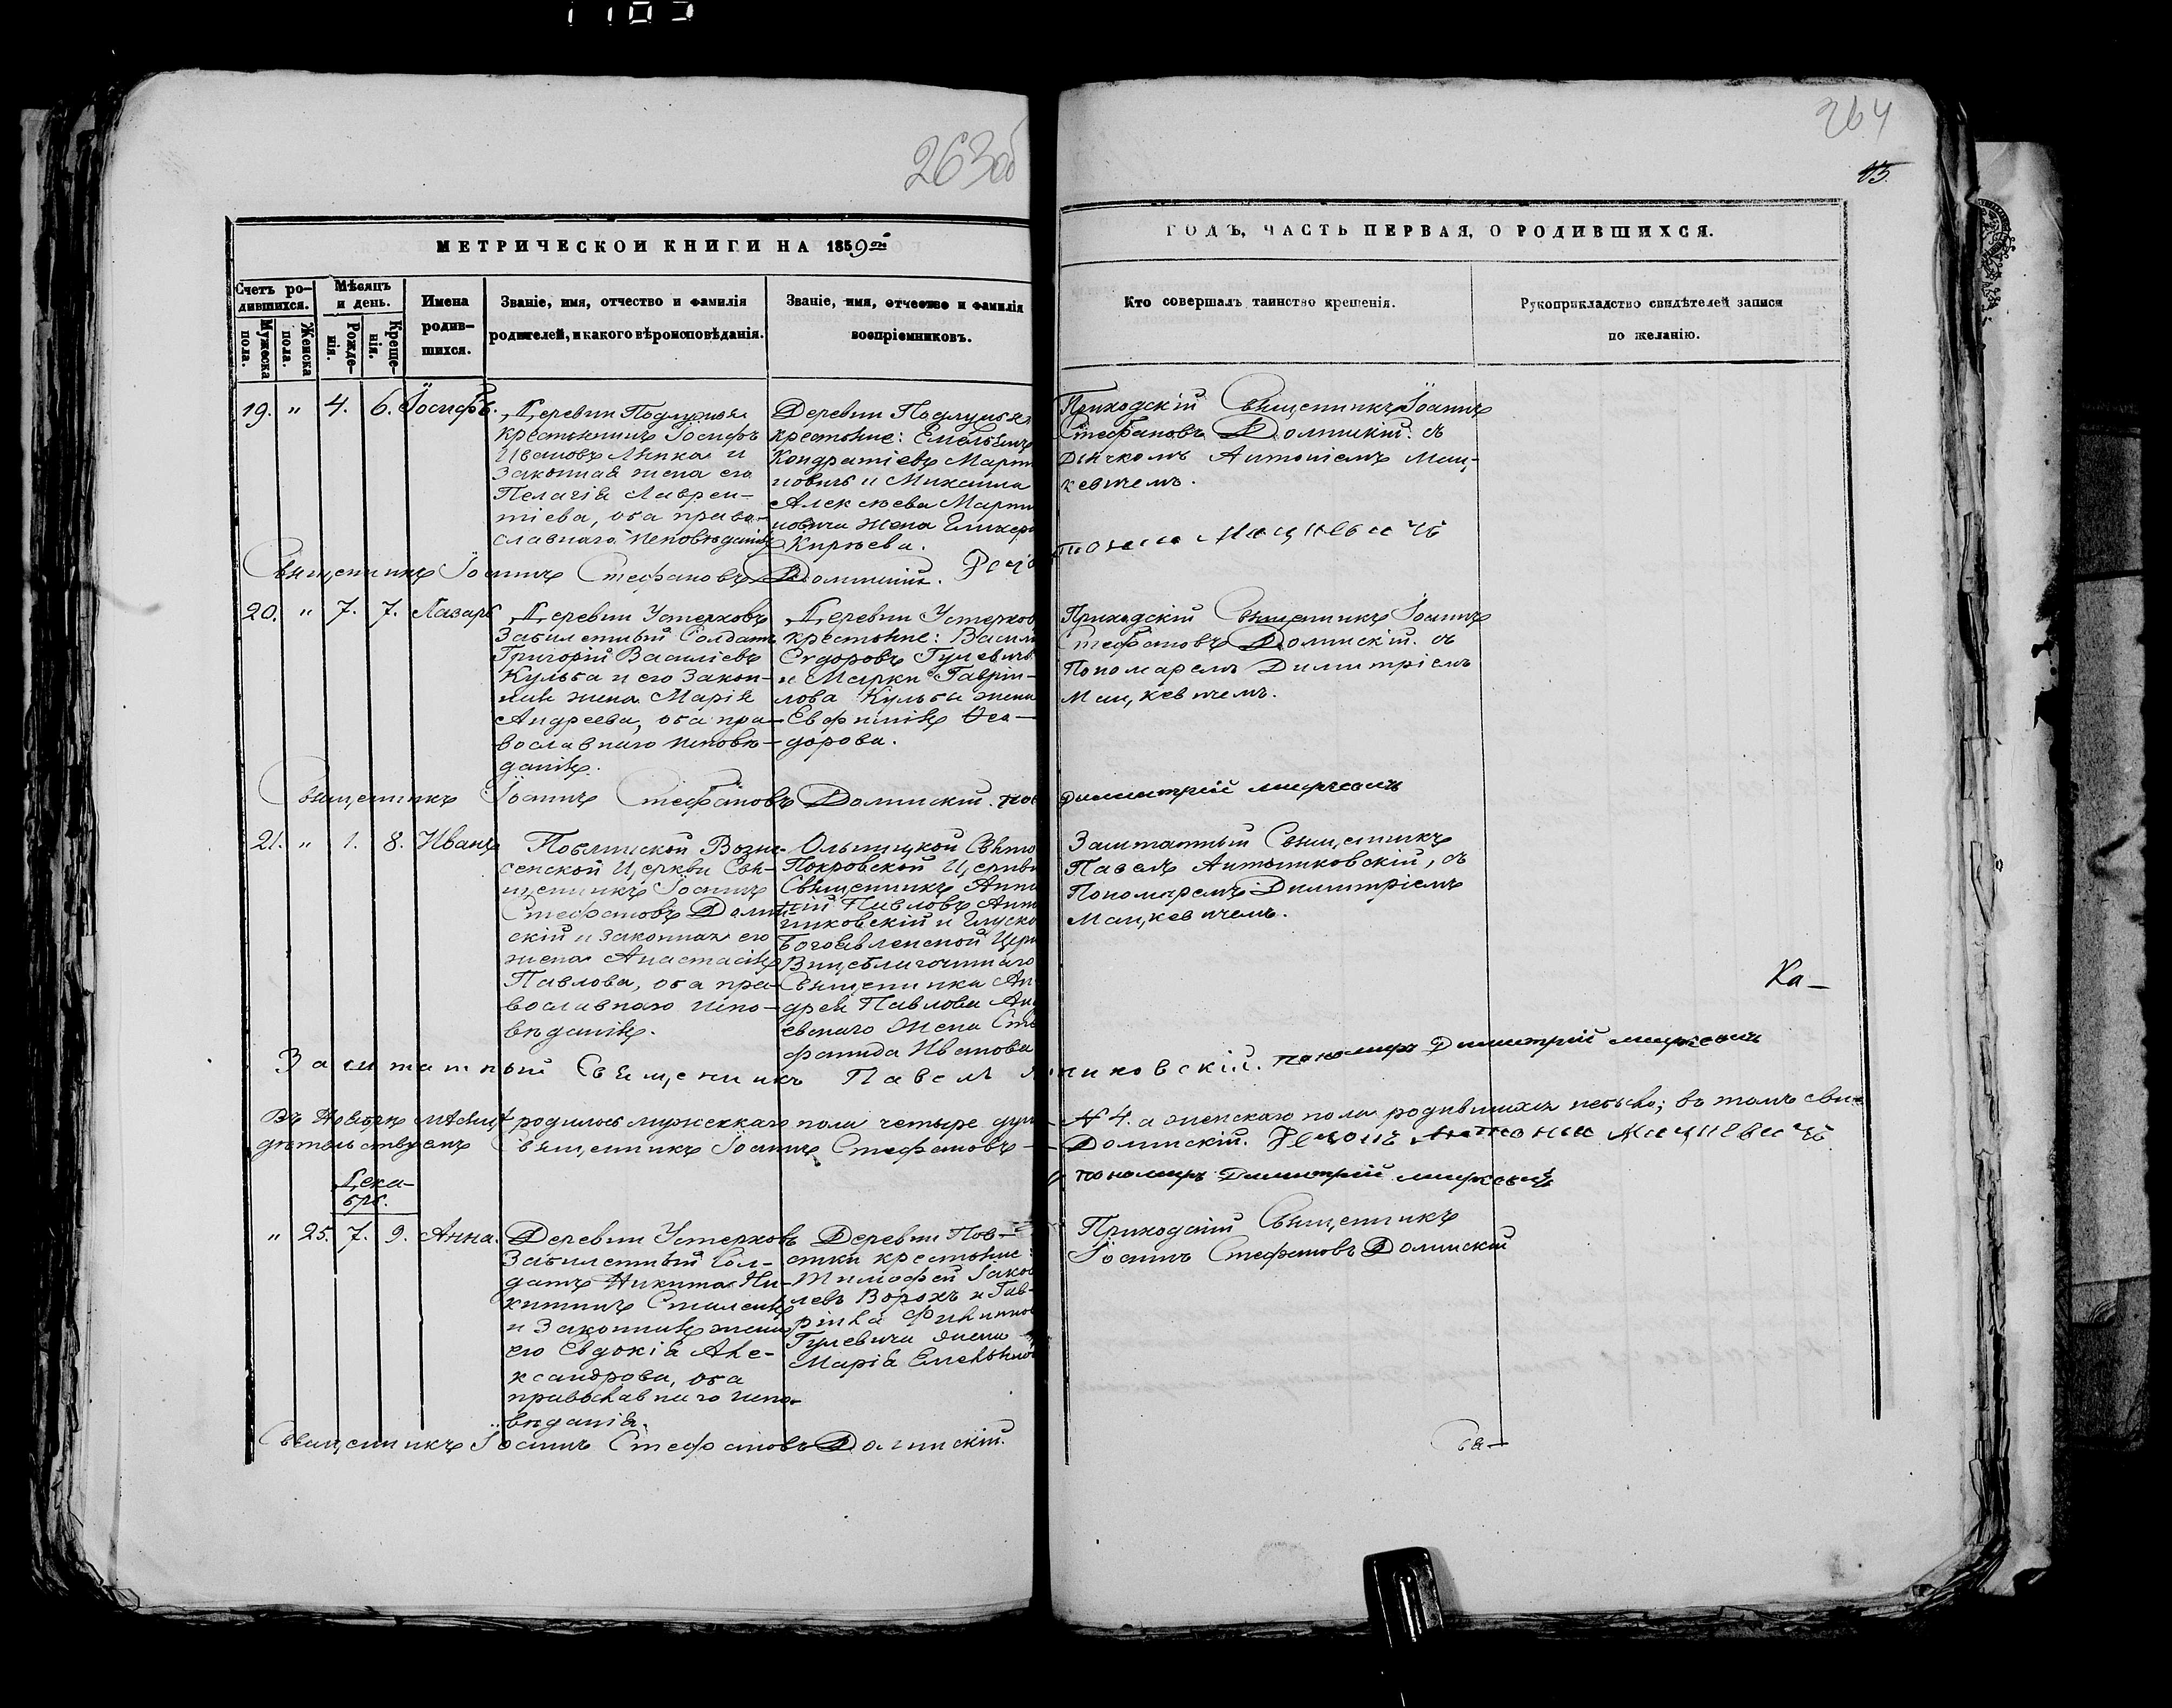 263об
264
15.
МЕТРИЧЕСКОЙ КНИГИ НА 1859й
ГОДЪ, ЧАСТЬ ПЕРВАЯ, О РОДИВШИХСЯ.
Счетъ ро-
дившихся.
Мужеска
пола.
Женска
пола.
Мѣсяцъ
и день.
Рожде-
нія.
Креще-
нія.
Имена
родив-
шихся.
Званіе, имя, отчество и фамилія
родителей, и какого вѣроисповѣданія.
Званіе, имя, отчество и фамилія
воспріемниковъ.
Кто совершалъ таинство крещенія.
Рукоприкладство свидѣтелей записи
по желанію.
19. " 4. 6. Іосифъ.
Деревни
крестьянинъ Іосифъ
Ивановъ и
Законная жена его
Пелагія Лаврен-
тіева, оба право-
славнаго исповѣданія
Деревни
крестьяне: Емельянъ
Кондратіевъ Марти
новичъ и Михаила
Алексѣева Марти
новича жена Гликері
Кирѣева.
Приходскій Священникъ Іоаннъ
Стефановъ Долинскій. съ
Дьячкомъ Антоніемъ Мац-
кевичемъ.
Священникъ Іоаннъ Стефановъ Долинскій.
Мацкевичъ
20. " 7. 7. Лазарь
Деревни Устерховъ
Забилетный Солдатъ
Григорій Василіевъ
Кульба и его Закон-
ная жена Марія
Андреева, оба пра-
вославнаго исповѣ-
данія.
Деревни Устерхов
крестьяне: Васил
Сидоровъ Гулевичъ
и Марки Гаврии-
лова Кульба жена
Евфимія Ѳео-
дорова.
Приходскій Священникъ Іоаннъ
Стефановъ Долинскій. съ
Пономаремъ Димитріемъ
Мацкевичемъ.
Священникъ Іоаннъ Стефановъ Долинскій. пон
Димитрій
21. " 1. 8. Иванъ
Возне-
сенской Церкви Свя-
щенникъ Іоаннъ
Стефановъ Долин-
скій и законная его
жена Анастасія
Павлова, оба пра-
вославнаго испо-
вѣданія.
Свято
Покровской Церкви
Священникъ Анто
ній Павловъ Анто
никовскій и Глуско
Богоявленской Церк
Вицеблагочиннаго
Священника Ан-
дрея Павлова
жена Сте
фанида Иванова
Заштатный Священникъ
Павелъ Антониковскій, съ
Пономаремъ Димитріемъ
Мацкевичемъ.
Ка-
Заштатный Священникъ Павелъ
никовскій. пономарь Димитрій
Въ Ноябрѣ мѣсяцѣ родилось мужескаго пола четыре душ
№ 4. а женскаго пола родившихся небыло; въ томъ сви-
дѣтельствуемъ Священникъ Іоаннъ Стефановъ
Долинскій. Мацкевичъ
пономарь Димитрій
Дека-
брь.
" 25. 7. 9. Анна.
Деревни Устерховъ
Забилетный Сол-
датъ Никита Ни-
китинъ
и Законная жена
его Евдокія Але-
ксандрова, оба
православнаго испо-
вѣданія.
Деревни
крестьяне:
Тимофей Іаков
левъ Ворохъ и Гав-
ріила Филиппов
Гулевича жена
Марія Емельянов
Приходскій Священникъ
Іоаннъ Стефановъ Долинскій
Священникъ Іоаннъ Стефановъ Долинскій.